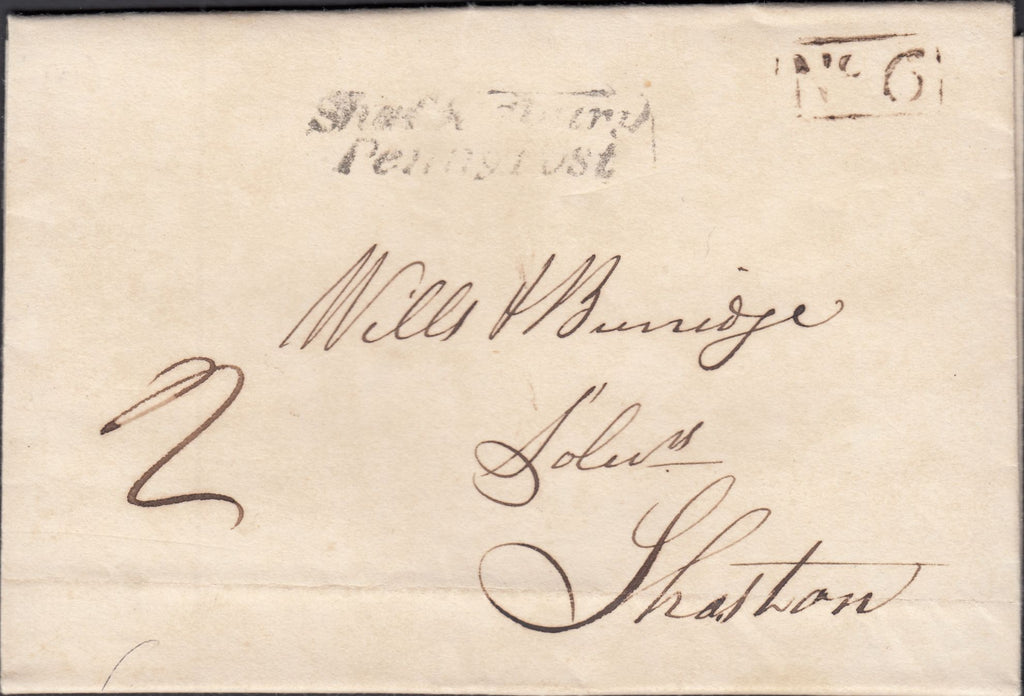 No. 6
Penny Post
Wills & Burridge
2
Solrs
Shaston